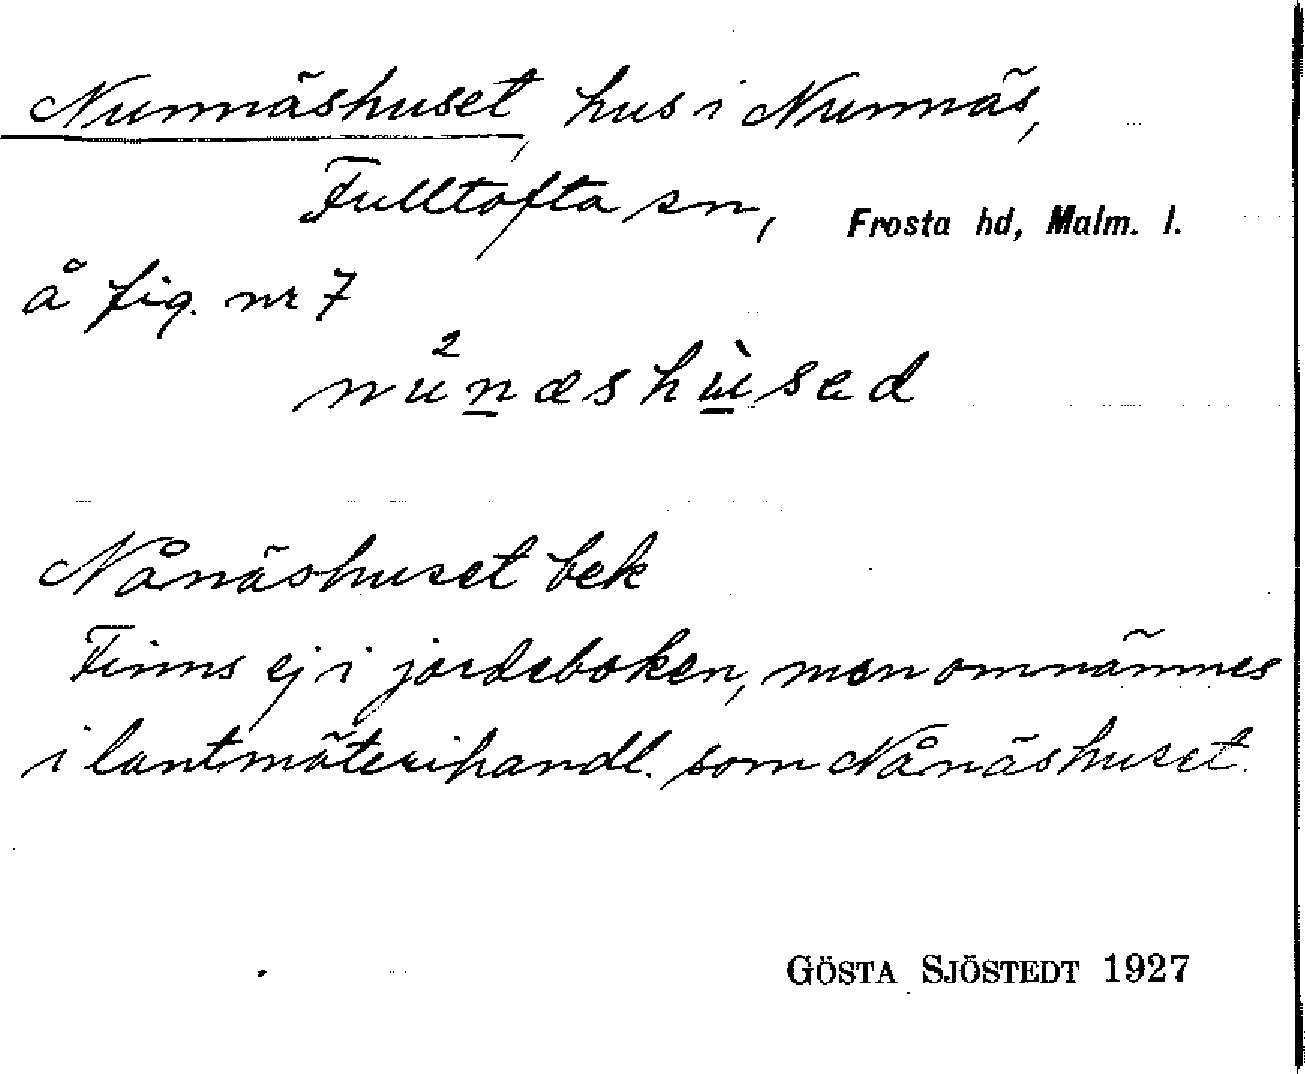 Nunnäshuset, hus i Nunnäs,
Fulltofta sn, Frosta hd, Malm. l.
å fig. nr 7
Nånäshuset bek
Finns ej i jordeboken, men omnämnes
i lantmäterihandl. som Nånäshuset.
GÖSTA SJÖSTEDT 1927